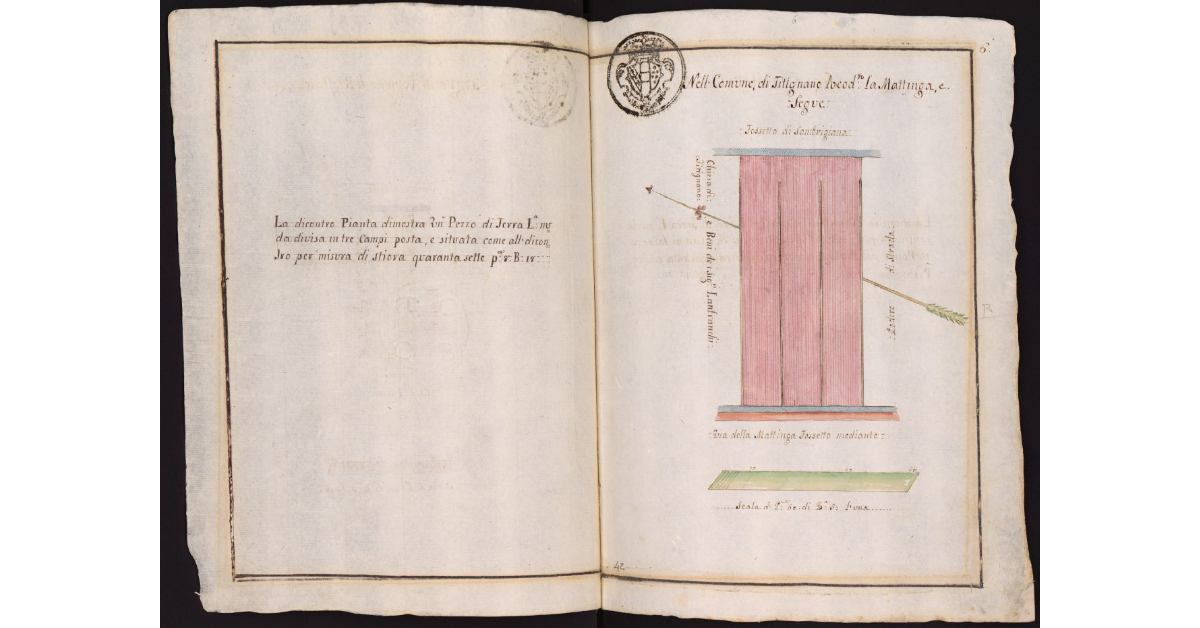 La dicontro Pianta dimostra Vn Pezzo di Terra L: nu
da divisa in tre Campi posta, e situata come all: dicon
tro per misura di stiora quaranta sette p: 8: B: 15:
6
Nell Comvne, di Titignano loco d:to la Mattinga, e
Segve:
Fossetto di
Chiesa di:
Titignano:
e Beni dei Sig:ri Lanfranchi:
Podere di Strada:
Via della Mattinga Fossetto mediante:
Scala di di 5:
42